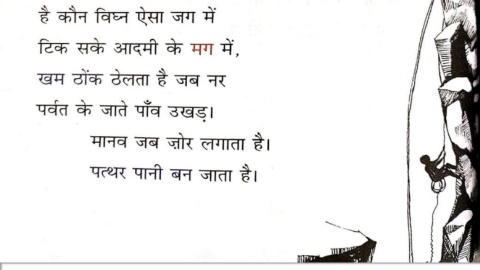 है कौन विघ्न ऐसा जग में
टिक सके आदमी के मग में,
खम ठोंक ठेलता है जब नर
पर्वत के जाते पाँव उखड़।
मानव जब ज़ोर लगाता है।
पत्थर पानी बन जाता है।